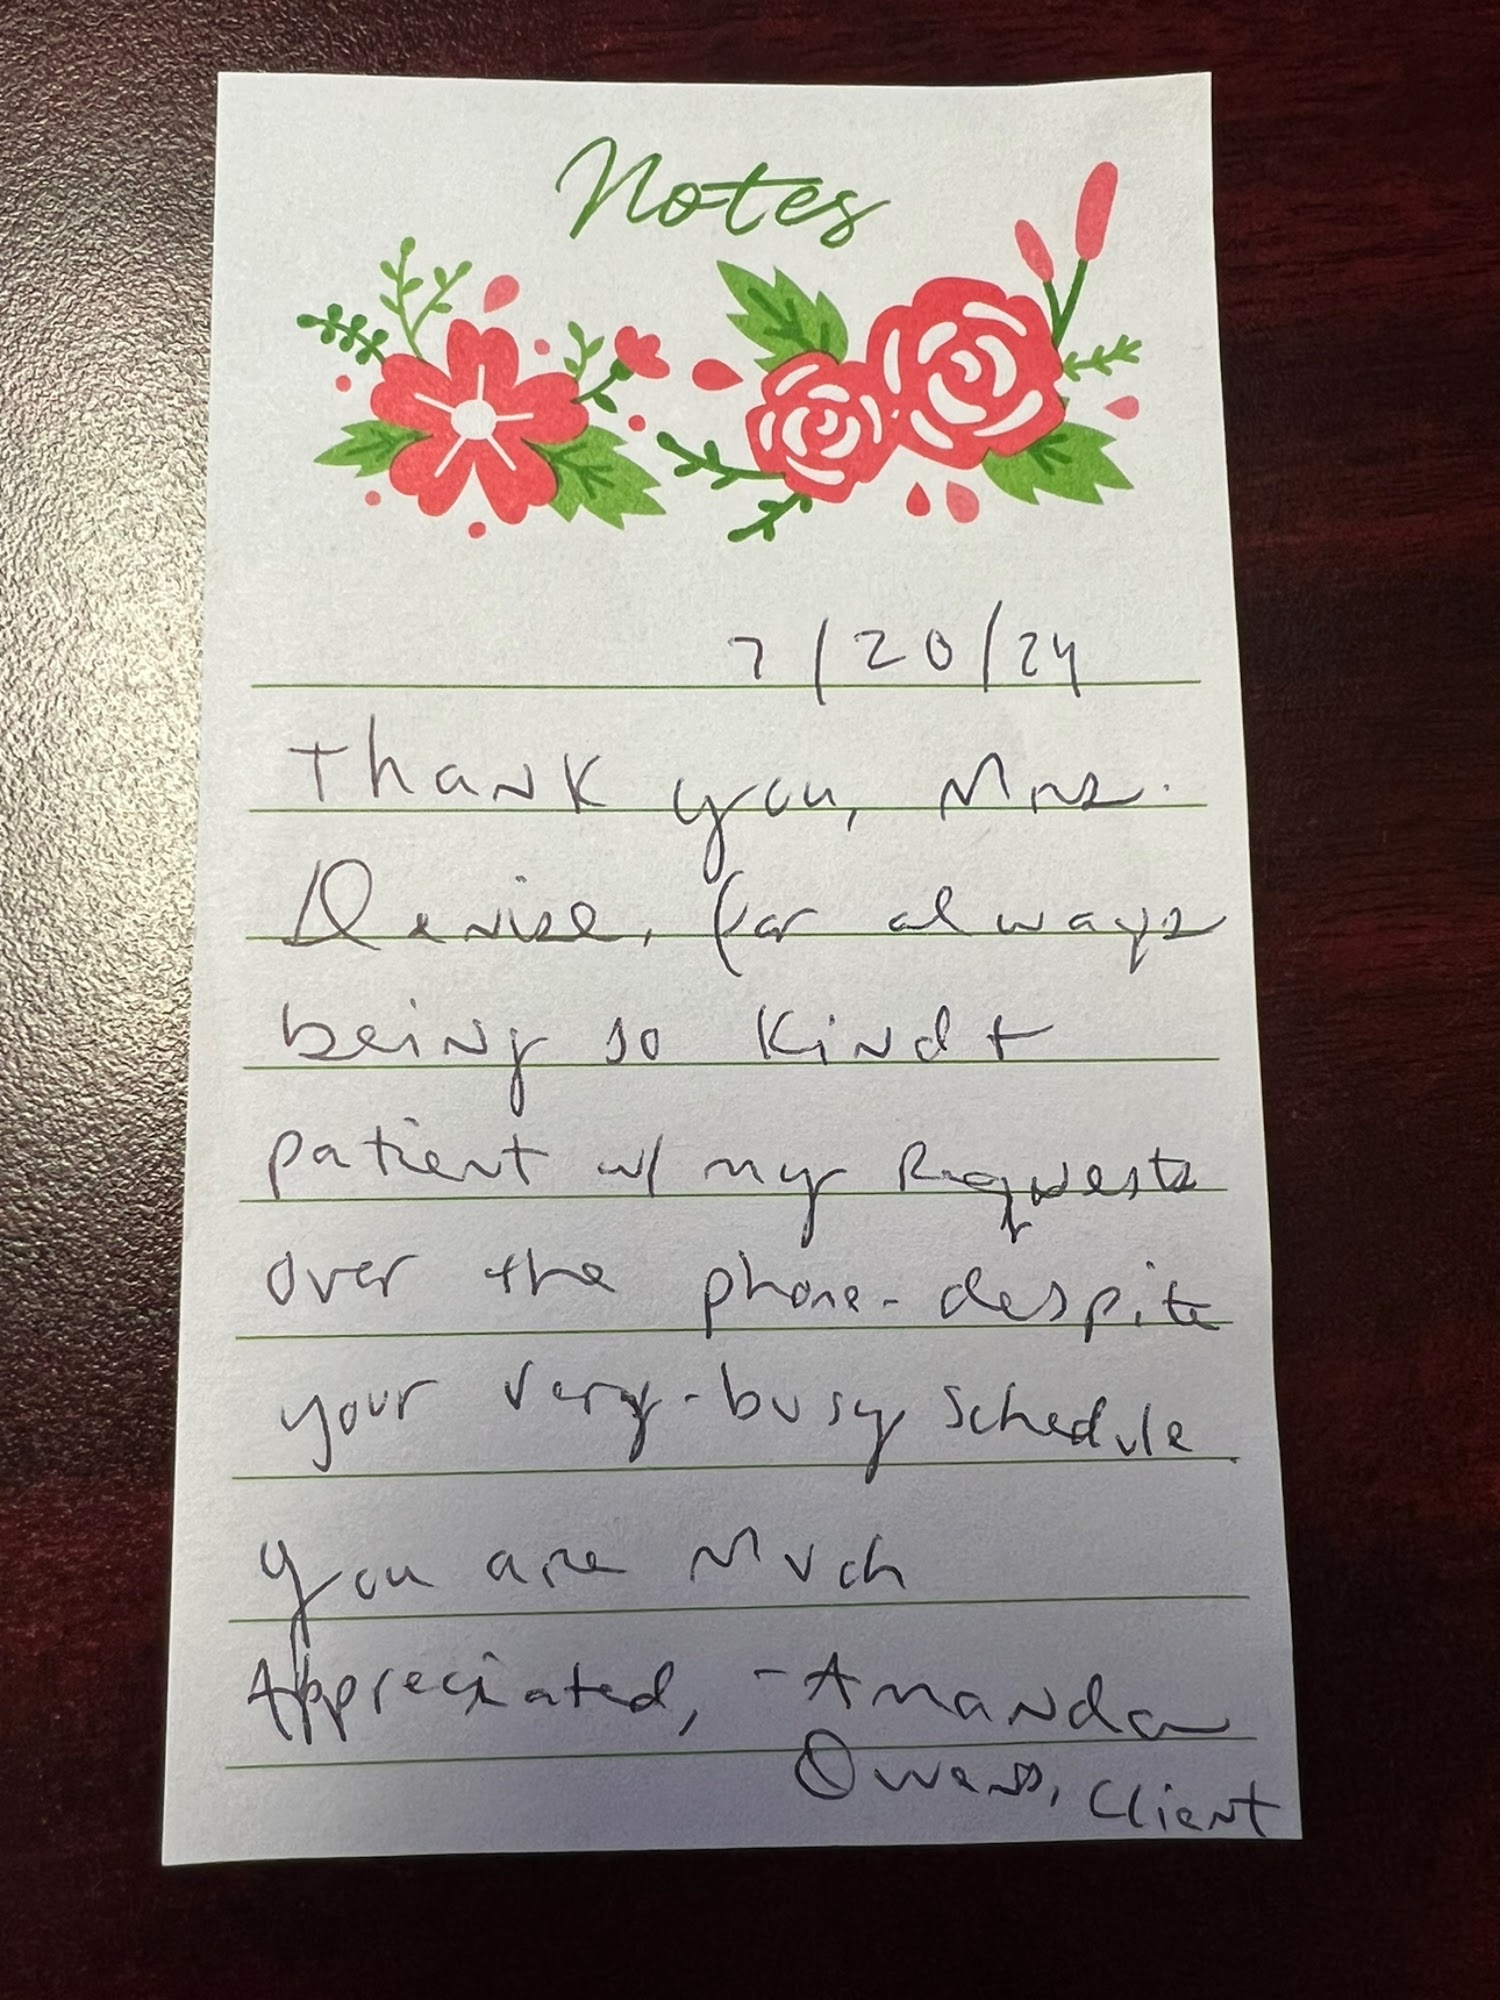 Notes
7/20/24
Thank you, Mrs.
Denise, for always
being so kind +
patient w/ my Requests
over the phone - despite
your very-busy schedule.
You are Much
Appreciated, - Amanda
Owens, Client